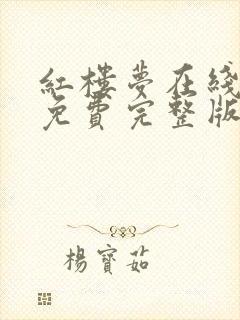 紅樓夢在綫
免費完整版
楊寶茹